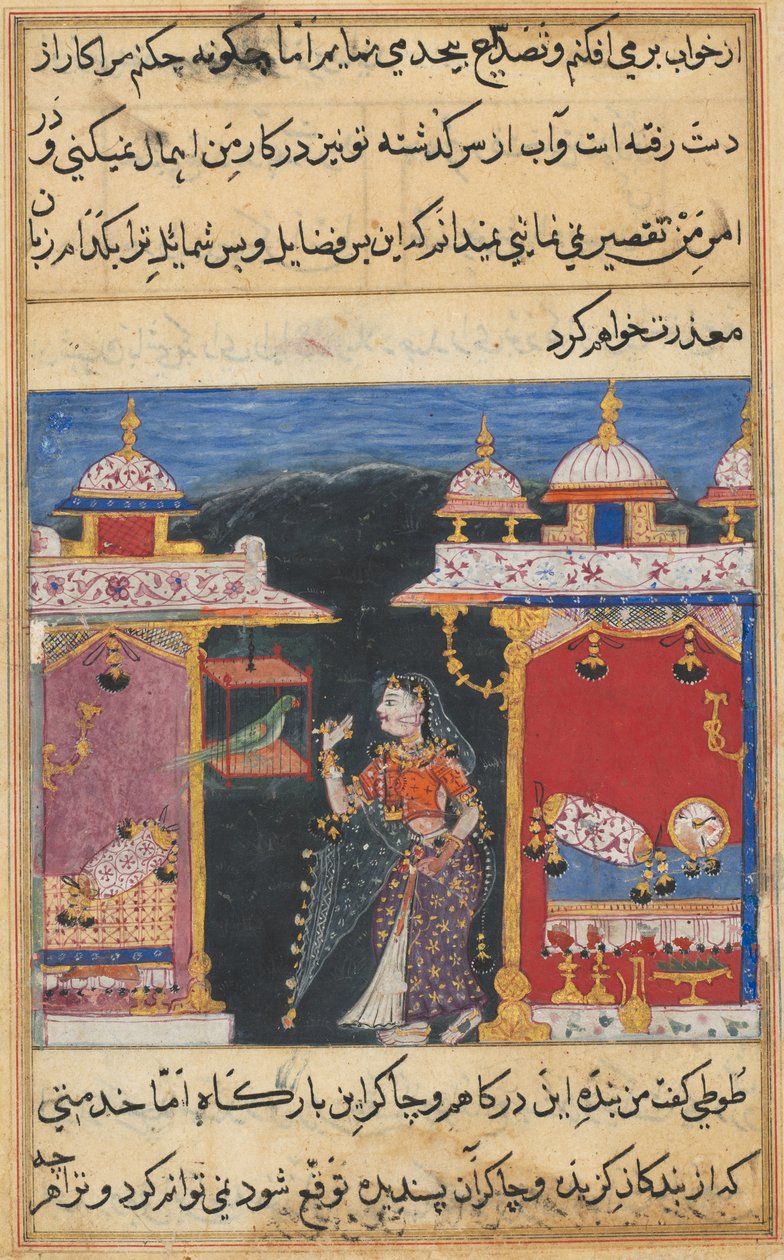 از خواب بر می افکنم و تصدیع بیحد می نمایم اما چگونه چکنم مرا کار از
دست رفته است و آب از سر گذشته تو نیز در کار من اهمال نمیکنی و در
امر من تقصیر نمی نمائی نمیدانم که این بس فضایل و بس شمائل ترا بکدام زبان
معذرت خواهم کرد
طوطی گفت من بنده این درگاهم و چاکر این بارگاه اما خدمتی
که از بندگان گزیده و چاکران پسندیده توقع شود نمی توانم کرد و ترا هر چه